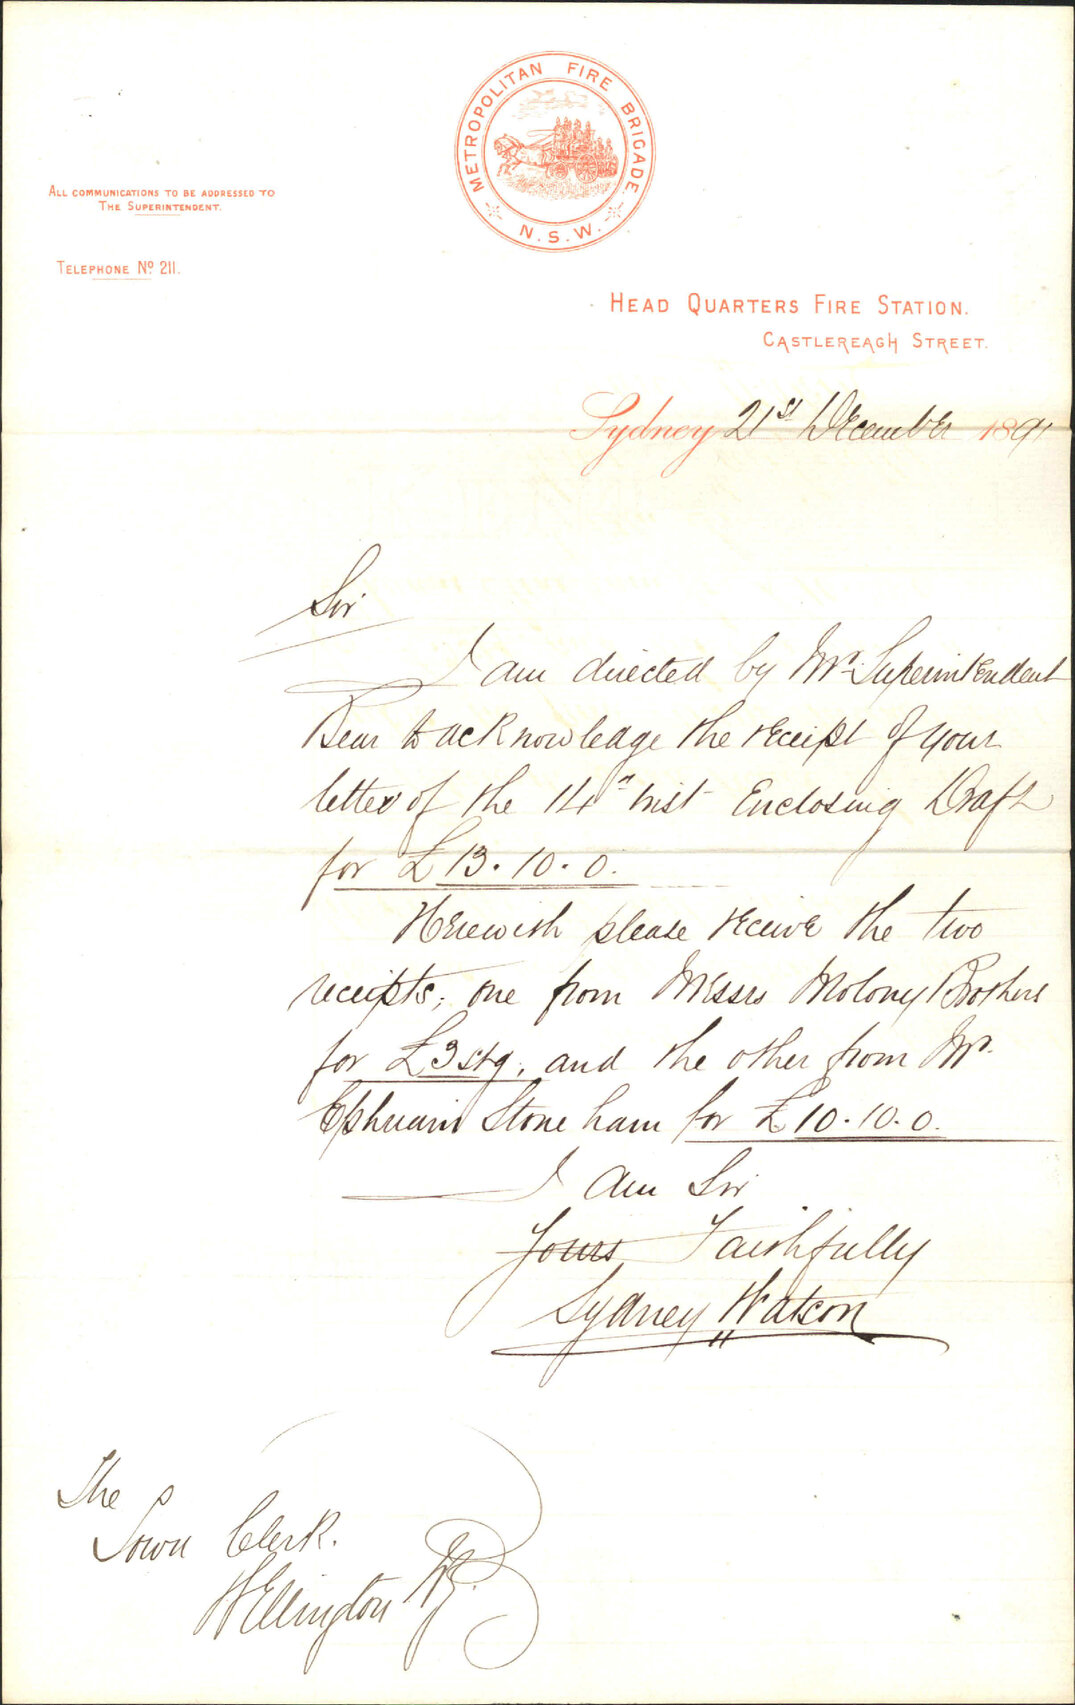 METROPOLITAN FIRE BRIGADE.
N.S.W.
ALL COMMUNICATIONS TO BE ADDRESSED TO
THE SUPERINTENDENT.
TELEPHONE No 211.
HEAD QUARTERS FIRE STATION.
CASTLEREAGH STREET.
Sydney 21st December 1891
Sir
I am directed by Mr. Superintendent
Bear to acknowledge the receipt of your
letter of the 14th inst Enclosing Draft
for £13.10.0.
Herewith please receive the two
receipts; one from Messrs Molony Brothers
for £3 stg; and the other from Mr.
Ephraim Stoneham for £10.10.0.
I am Sir
Yours Faithfully
Sydney Watson
The
Town Clerk.
Wellington NZ.